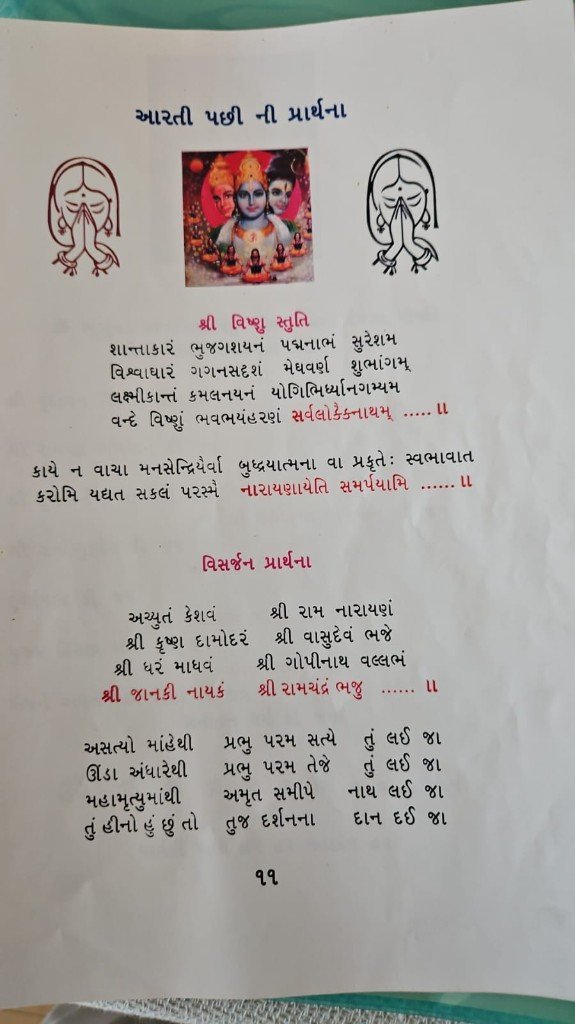 આરતી પછી ની પ્રાર્થના
શ્રી વિષ્ણુ સ્તુતિ
શાન્તાકારં ભુજગશયનં પદ્મનાભં સુરેશમ
વિશ્વાધારં ગગનસદૃશં મેઘવર્ણ શુભાંગમ્
લક્ષ્મીકાન્તં કમલનયનં યોગિભિર્ધ્યાનગમ્યમ
વન્દે વિષ્ણું ભવભયંહરણં સર્વલોકૈકનાથમ્ ..... ॥
કાયે ન વાચા મનસેન્દ્રિયૈર્વા બુધ્દ્રયાત્મના વા પ્રકૃતેઃ સ્વભાવાત
કરોમિ યદ્યત સકલં પરસ્મૈ નારાયણાયેતિ સમર્પયામિ ...... ॥
વિસર્જન પ્રાર્થના
અચ્યુતં કેશવં શ્રી રામ નારાયણં
શ્રી કૃષ્ણ દામોદરં શ્રી વાસુદેવં ભજે
શ્રી ધરં માધવં શ્રી ગોપીનાથ વલ્લભં
શ્રી જાનકી નાયકં શ્રી રામચંદ્રં ભજુ ...... ॥
અસત્યો માંહેથી પ્રભુ પરમ સત્યે તું લઈ જા
ઊંડા અંધારેથી પ્રભુ પરમ તેજે તું લઈ જા
મહામૃત્યુમાંથી અમૃત સમીપે નાથ લઈ જા
તું હીનો હું છું તો તુજ દર્શનના દાન દઈ જા
૧૧